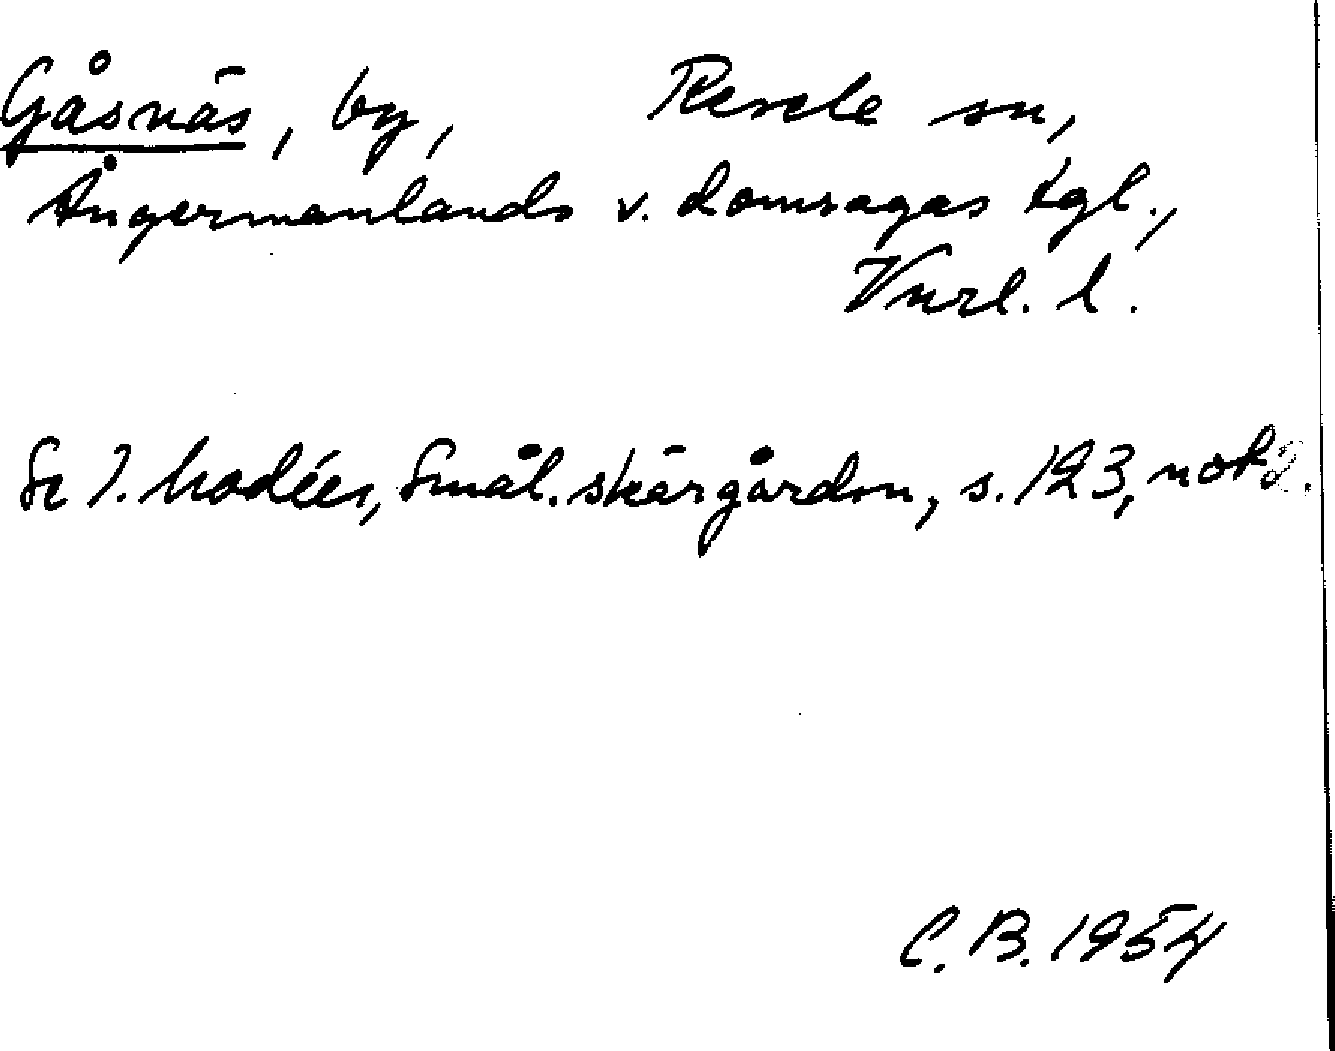 Gåsnäs, by, Resele sn,
Ångermanlands v. domsagas tgl.,
Vnrl. l.
Se I. Modéer, Smål. skärgårdsn, s. 123, not 2.
C. B. 1954